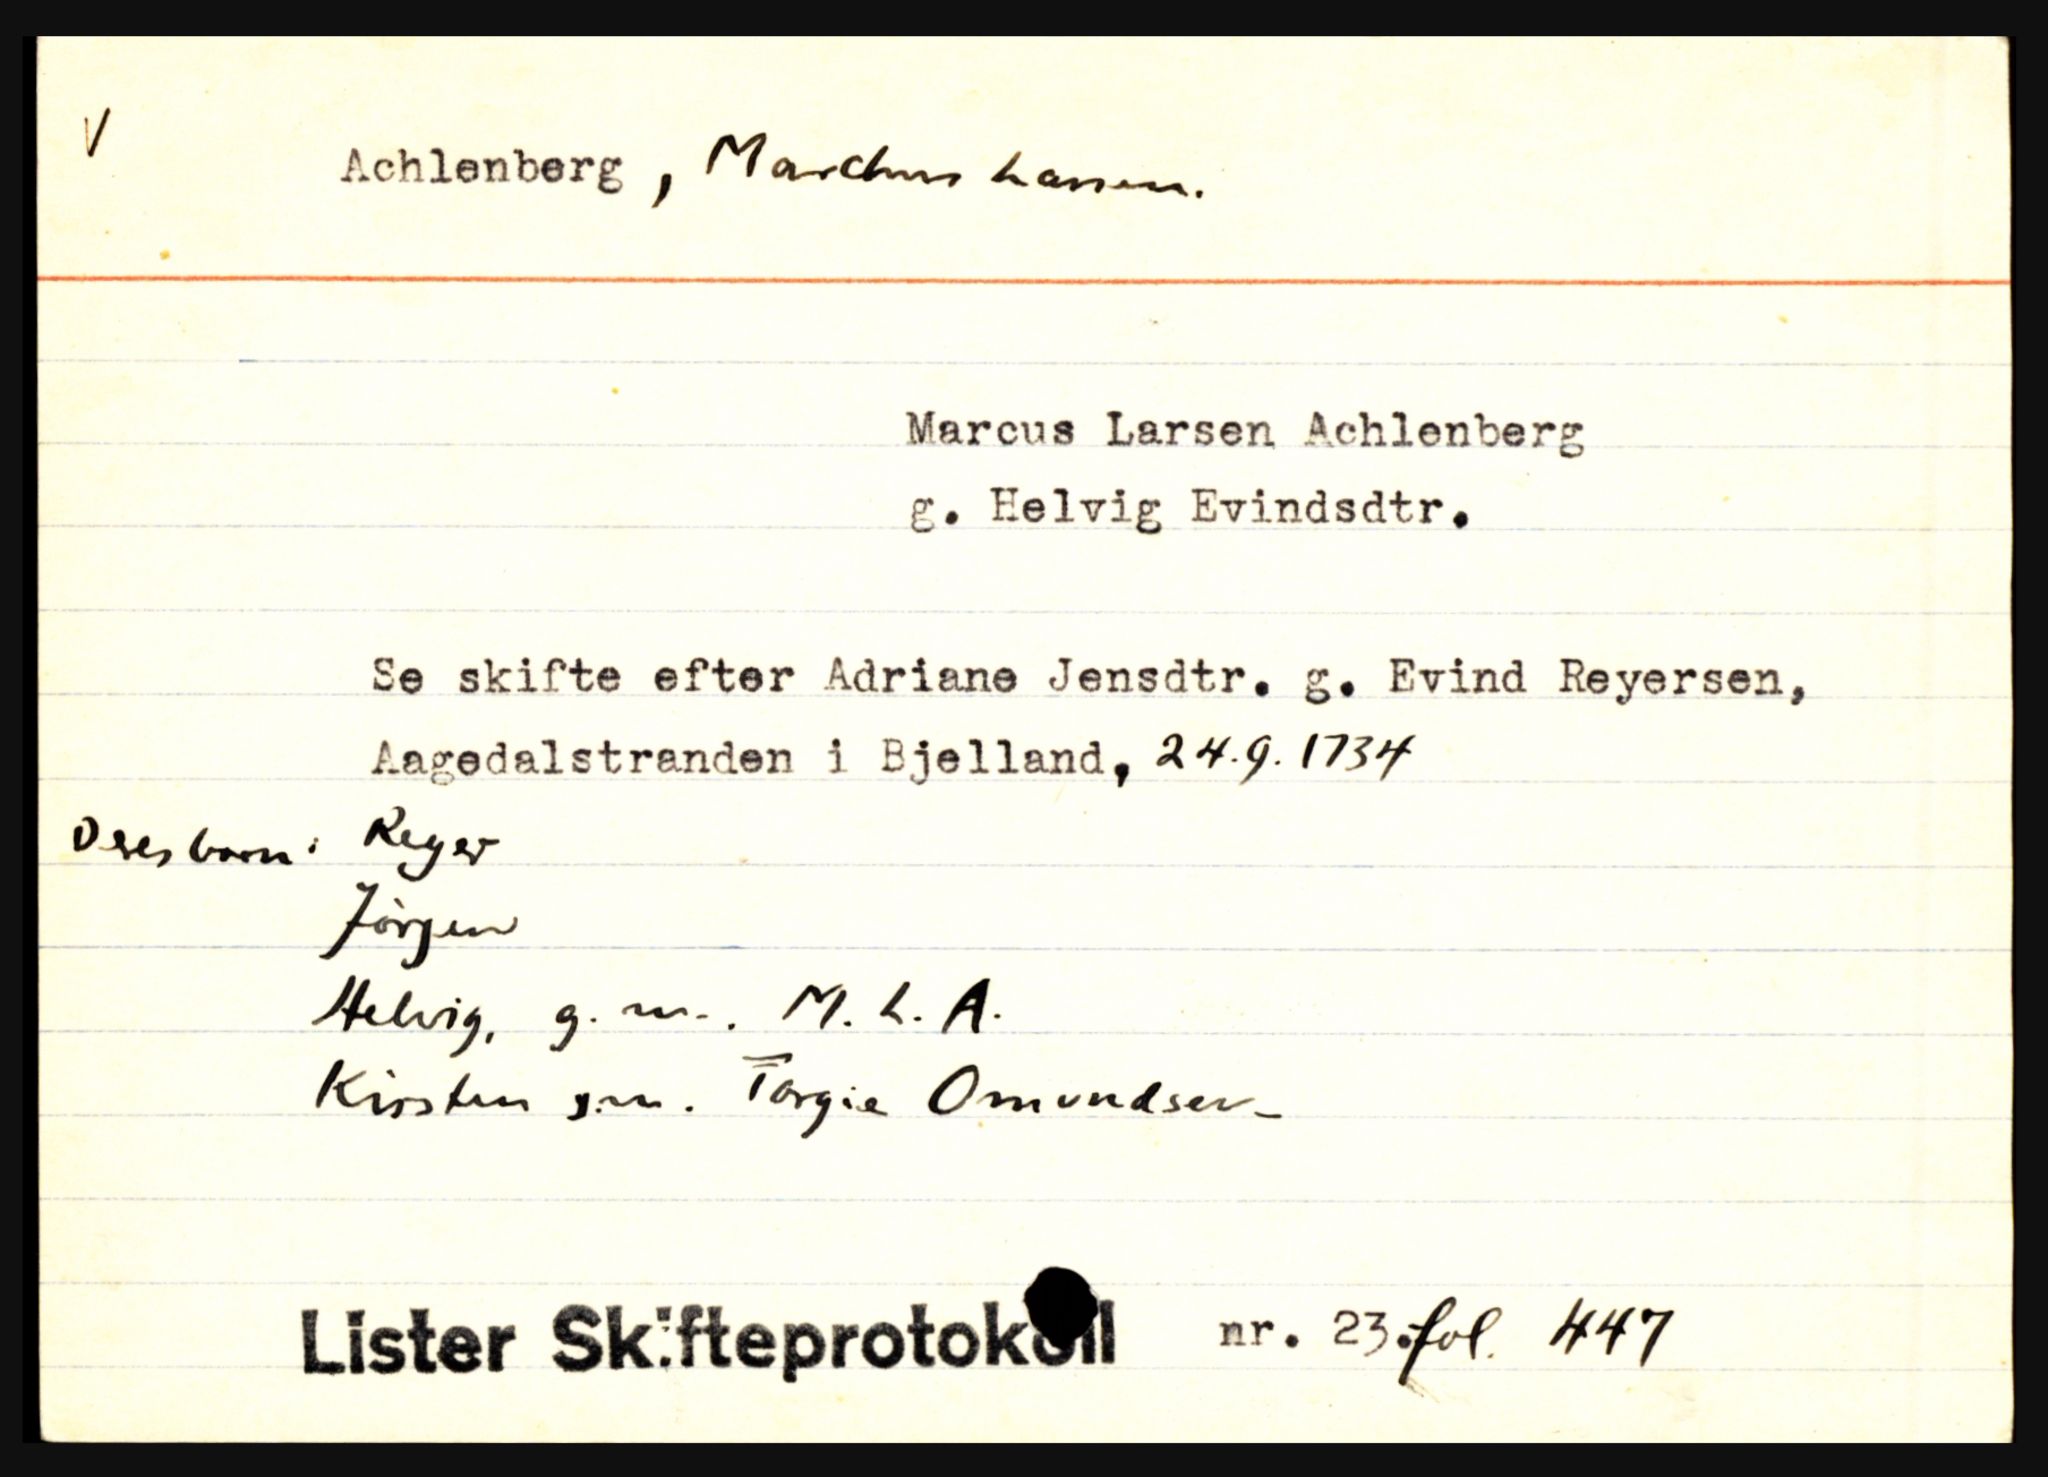 V
Achlenberg, Marchus Larsen.
Marcus Larsen Achlenberg
g. Helvig Evindsdtr.
Se skifte efter Adriane Jensdtr. g. Evind Reyersen,
Aagedalstranden i Bjelland, 24.9.1734
Deres born: Reyer
Jörgen
Helvig, g. m. M. L. A.
Kirsten g.m. Torgie Omundsen
Lister Skifteprotokoll nr. 23. fol. 447